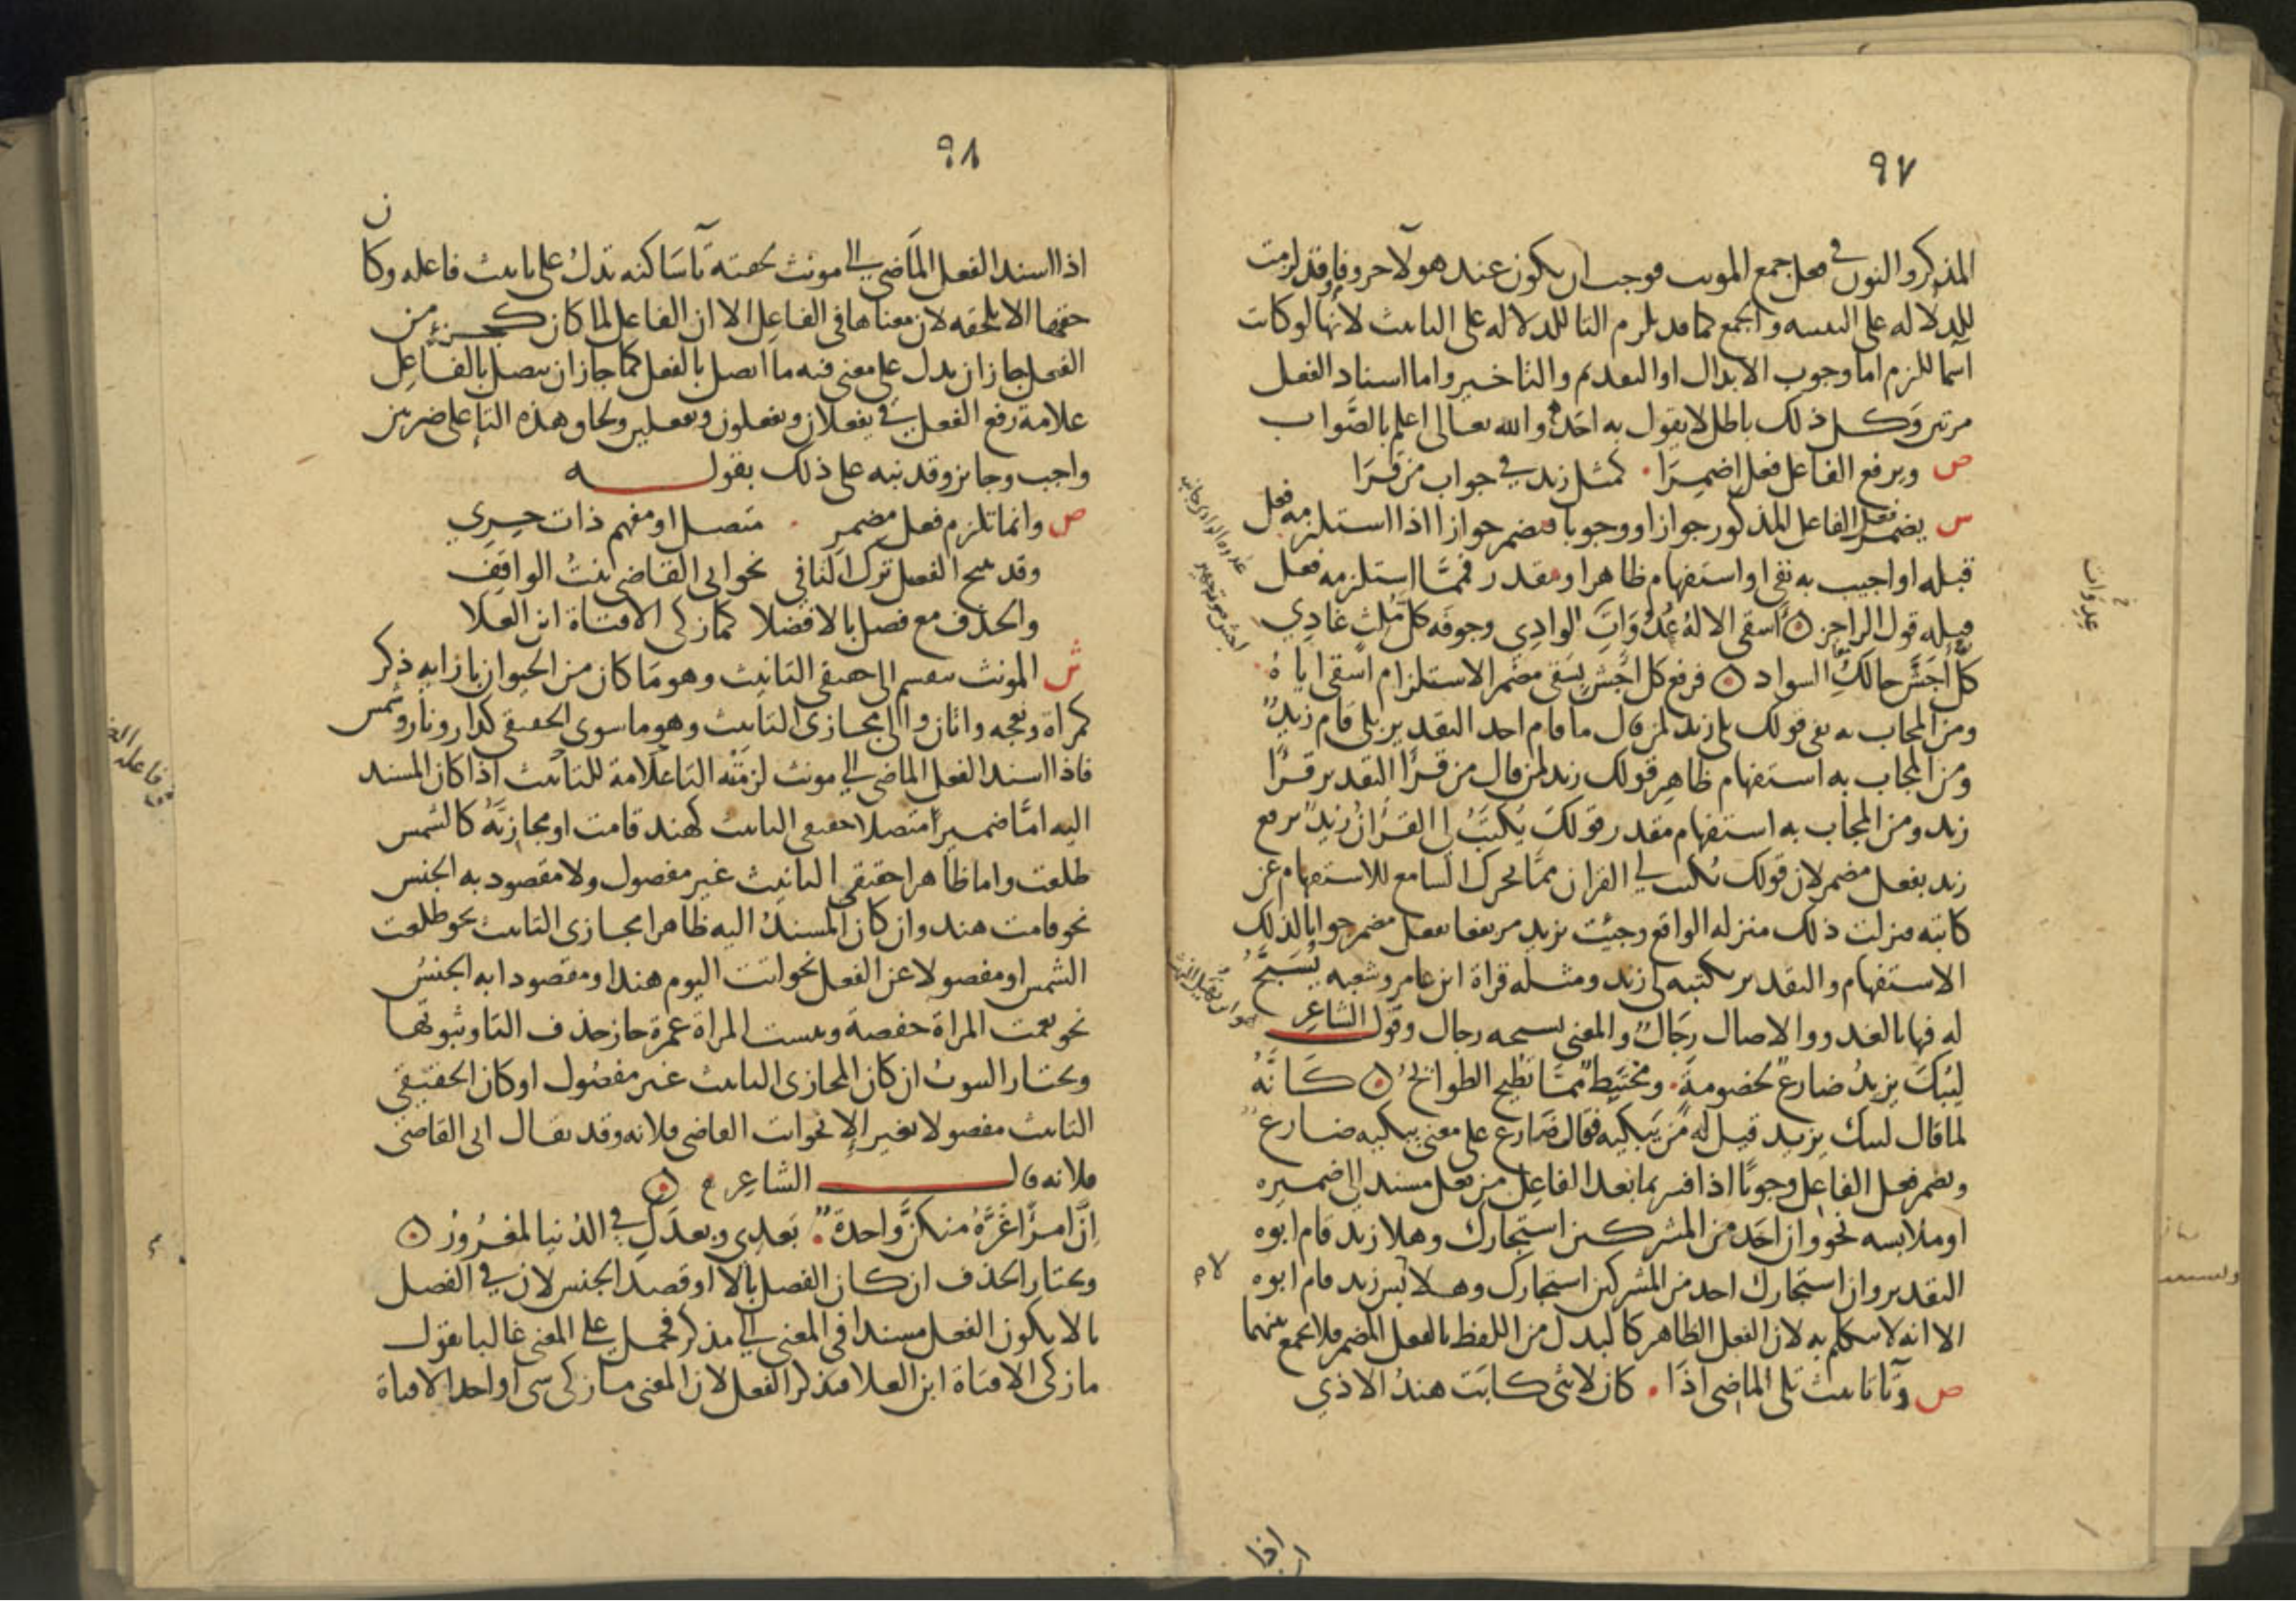 ٩٧
المذكر والنون في محل جمع المونث فوجب ان يكون عند هولا حروفا وقد لزمت
للدلاله على التثنيه والجمع كما قد يلزم التا للدلاله على التانيث لانها لو كانت
اسما للزم اما وجوب الابدال او التقديم والتاخير واما اسناد الفعل
مرتين وكل ذلك باطل لا يقول به احد والله تعالى اعلم بالصواب
ص ويرفع الفاعل فعل اضمرا . كمثل زيد في جواب من قرا
س يضمر فعل الفاعل المذكور جوازا ووجوبا فيضمر جوازا اذا استلزمه فعل
قبله او اجيب به نفي او استفهام ظاهر او مقدر فمما استلزمه فعل
قبله قول الراجز ۞ أسقى الالهُ عُدُوَاتِ الوادِي وجوفَه كلَّ مُلِثٍ غادِي
كلُّ أجَشَّ حالكِ السواد ۞ فرفع كل اجش بسقى مضمر الاستلزام اسقى اياه
ومن المجاب به نفي قولك بلى زيد لمن قال ما قام احد التقدير بلى قام زيدٌ
ومن المجاب به استفهام ظاهر قولك زيد لمن قال من قرأ التقدير قرأ
زيد ومن المجاب به استفهام مقدر قولك يُكتَبُ لي القرانُ زيدٌ يرفع
زيد بفعل مضمر لان قولك يكتب لي القران مما يحرك السامع للاستفهام عن
كاتبه فنزلت ذلك منزله الواقع وجيت بزيد مرتفعا بفعل مضمر جوابا لذلك
الاستفهام والتقدير يكتبه لي زيد ومثله قراة ابن عامر وشعبه يُسَبَّحُ
له فيها بالغدو والاصال رجالٌ والمعنى يسبحه رجال وقول الشاعر
ليُبْكَ يزيدُ ضارعٌ لخصومةٍ . ومختبطٌ مما تُطيح الطوائحُ ۞ كأنه
لما قال ليبك يزيد قيل له من يبكيه فقال ضارع على معنى يبكيه ضارعٌ
ويضمر فعل الفاعل وجوبًا اذا فسر بما بعد الفاعل من فعل مسند الى ضميره
او ملابسه نحو وان احد من المشركين استجارك وهلا زيد قام ابوه
التقدير وان استجارك احد من المشركين استجارك وهلا لابس زيد قام ابوه
الا انه لا يتكلم به لان الفعل الظاهر كالبدل من اللفظ بالفعل المضمر فلا يجمع بينهما
ص وتا تانيث تلي الماضي اذا . كان لانثى كابت هندُ الاذي
عدوات
اذا
٩٨
اذا اسند الفعل الماضي الى مونث لحقته تا ساكنه تدل على تانيث فاعله وكان
حقها الا تلحقه لان معناها في الفاعل الا ان الفاعل لما كان كجزء من
الفعل جاز ان يدل على معنى فيه ما اتصل بالفعل كما جاز ان يتصل بالفاعل
علامة رفع الفعل في يفعلان ويفعلون وتفعلين ولحاق هذه التا على ضربين
واجب وجايز وقد نبه على ذلك بقوله
ص وانما تلزم فعل مضمر . متصل او مفهم ذات حِرِي
وقد يبيح الفصل ترك التا في نحو اتى القاضي بنت الواقفِ
والحذف مع فصل بالا فضلا كما زكى الا فتاة ابن العلا
ش المونث ينقسم الى حقيقي التانيث وهو ما كان من الحيوان بازايه ذكر
كمراة ونعجه واتان والى مجازي التانيث وهو ما سوى الحقيقي كدار ونار وشمس
فاذا اسند الفعل الماضي الى مونث لزمته التا علامة للتانيث اذا كان المسند
اليه اما ضميرا متصلا حقيقي التانيث كهند قامت او مجازيَّهُ كالشمس
طلعت واما ظاهرا حقيقي التانيث غير مفصول ولا مقصود به الجنس
نحو قامت هند وان كان المسند اليه ظاهرا مجازي التانيث نحو طلعت
الشمس او مفصولا عن الفعل نحو اتت اليوم هند او مقصودا به الجنس
نحو نعمت المراة حفصة وبيست المراة عمرة جاز حذف التا وثبوتها
ويختار الثبوت ان كان المجازي التانيث غير مفصول او كان الحقيقي
التانيث مفصولا بغير إلا نحو اتت القاضي فلانه وقد يقال اتى القاضي
فلانه قال الشاعر ۞
إنَّ امرأً غَرَّهُ منكنَّ واحدةٌ . بَعدِي وبعدَكِ في الدنيا لمغرورُ ۞
ويختار الحذف ان كان الفصل بالا او قصد الجنس لان في الفصل
بالا يكون الفعل مسندا في المعنى الى مذكر فحمل على المعنى غالبا تقول
ما زكى الا فتاة ابن العلا فتذكر الفعل لان المعنى ما زكى شي او احد الا فتاة